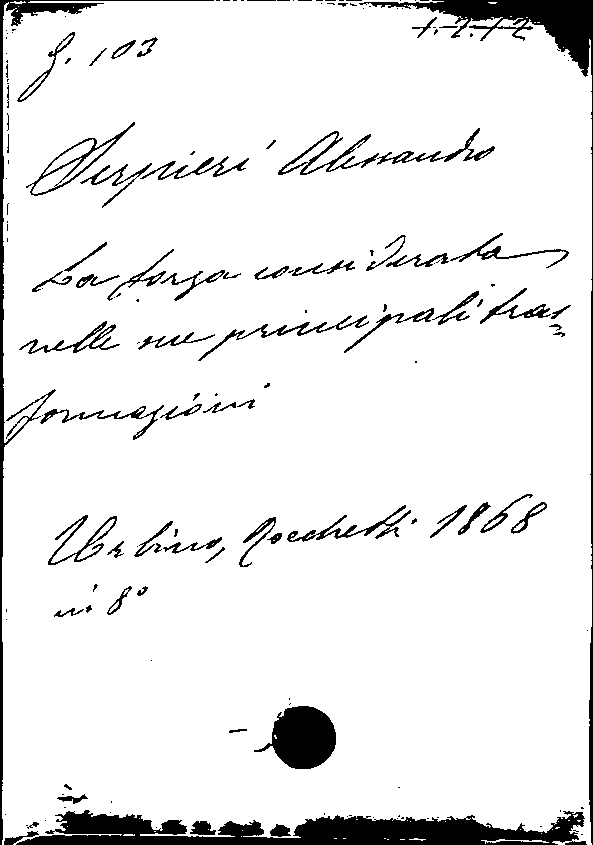 G. 103
1.2.12
Serpieri Alessandro
La forza considerata
nelle sue principali tras=
formazioni
Urbino, Rocchetti 1868
in 8°